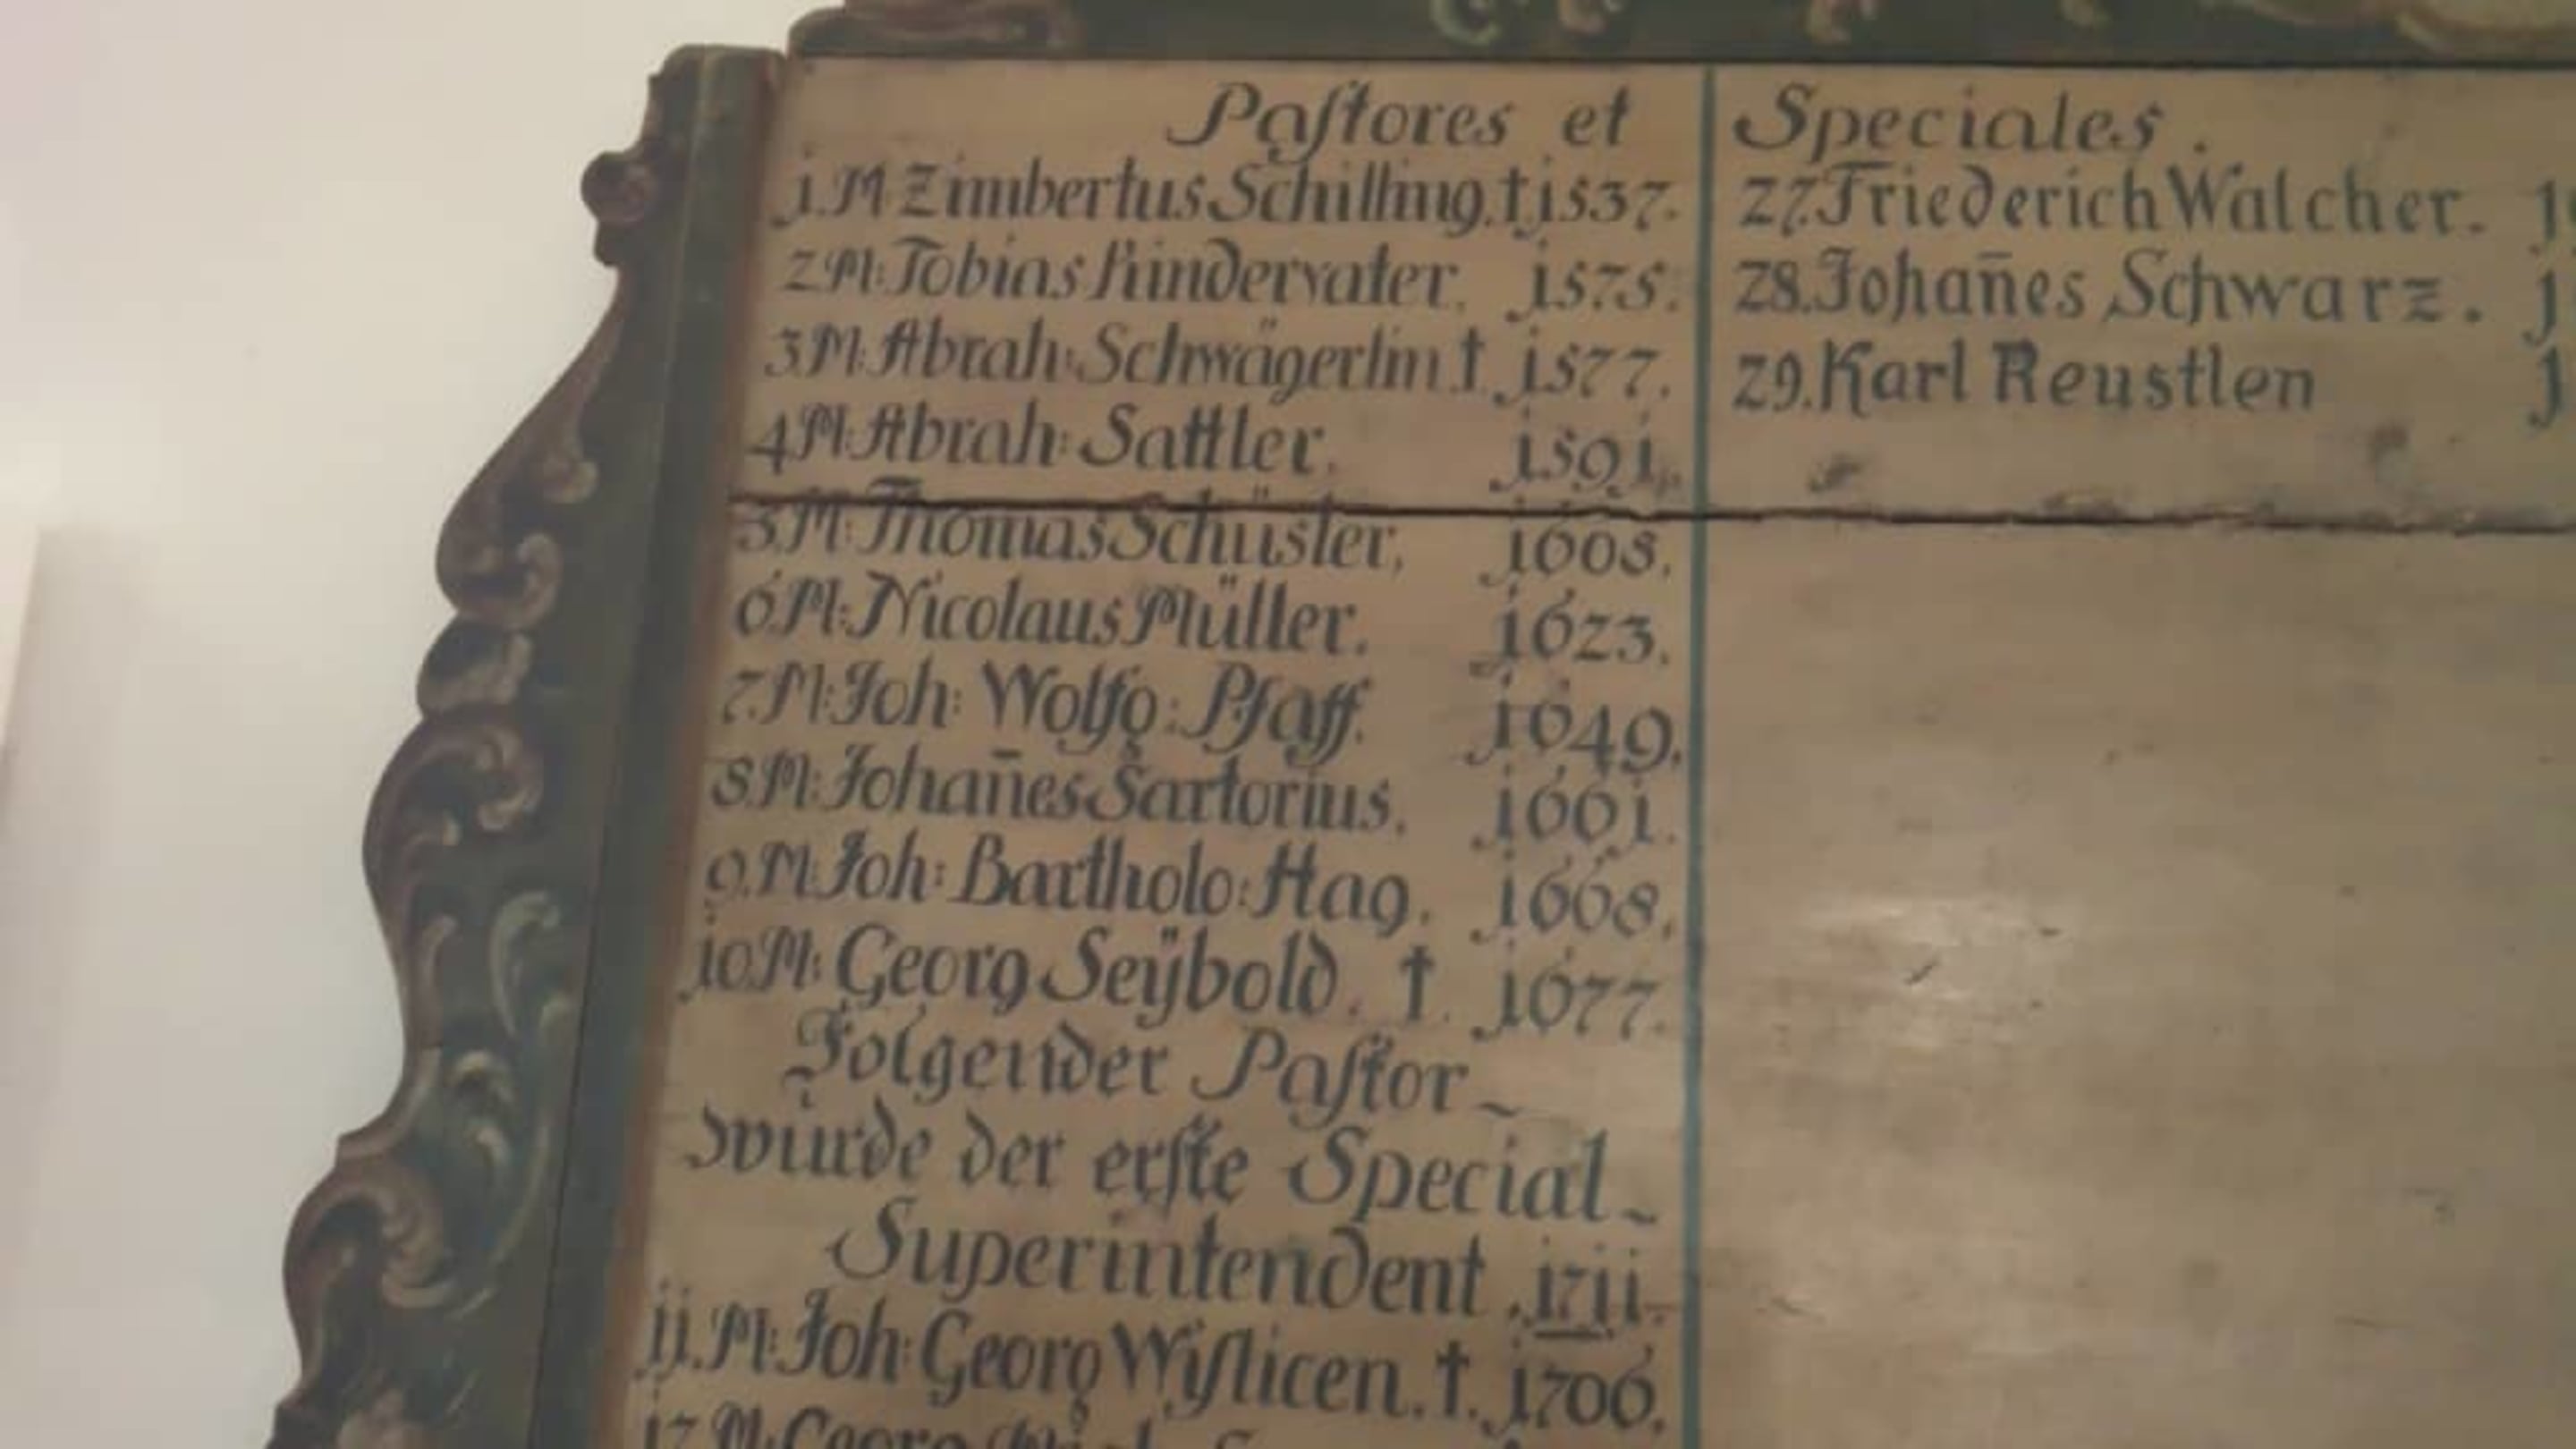 Paſtores et Speciales.
1. M Zimbertus Schilling. † 1537.
2 M: Tobias Kindervater. 1575.
3 M: Abrah: Schwägerlin †. 1577.
4 M: Abrah: Sattler. 1591.
5. M: Thomas Schüster. 1608.
6. M: Nicolaus Müller. 1623.
7. M: Joh: Wolfg: Pfaff. 1649.
8. M: Johan̄es Sartorius. 1661.
9. M: Joh: Bartholo: Hag. 1668.
10. M: Georg Seÿbold. †. 1677.
Folgender Paſtor
wurde der erſte Special
Superintendent 1711.
11. M: Joh: Georg Wiſlicen. †. 1706.
M: Georg
27. Friederich Walcher.
28. Johan̄es Schwarz.
29. Karl Reustlen